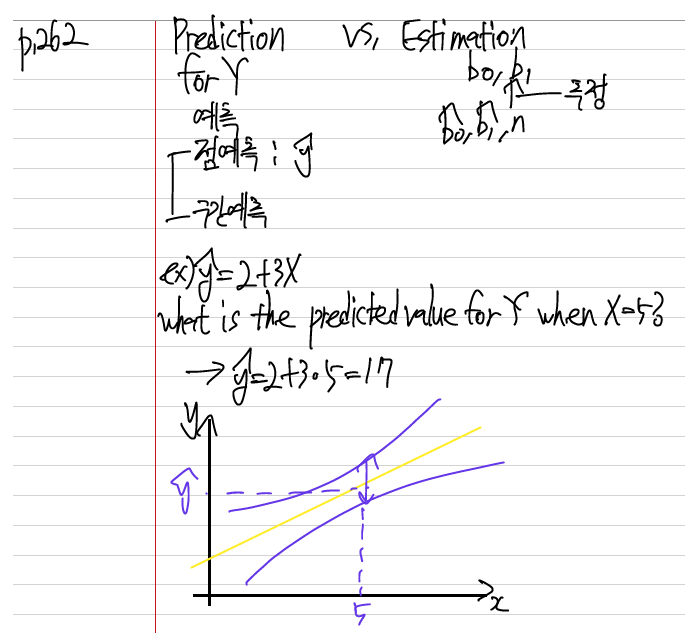 p.262
Prediction vs. Estimation
for Y
b0, b1
예측
추정
b̂0, b̂1, n
점예측 : ŷ
구간예측
ex) ŷ=2+3X
what is the predicted value for Y when X=5?
→ ŷ=2+3·5=17
y
ŷ
5
x